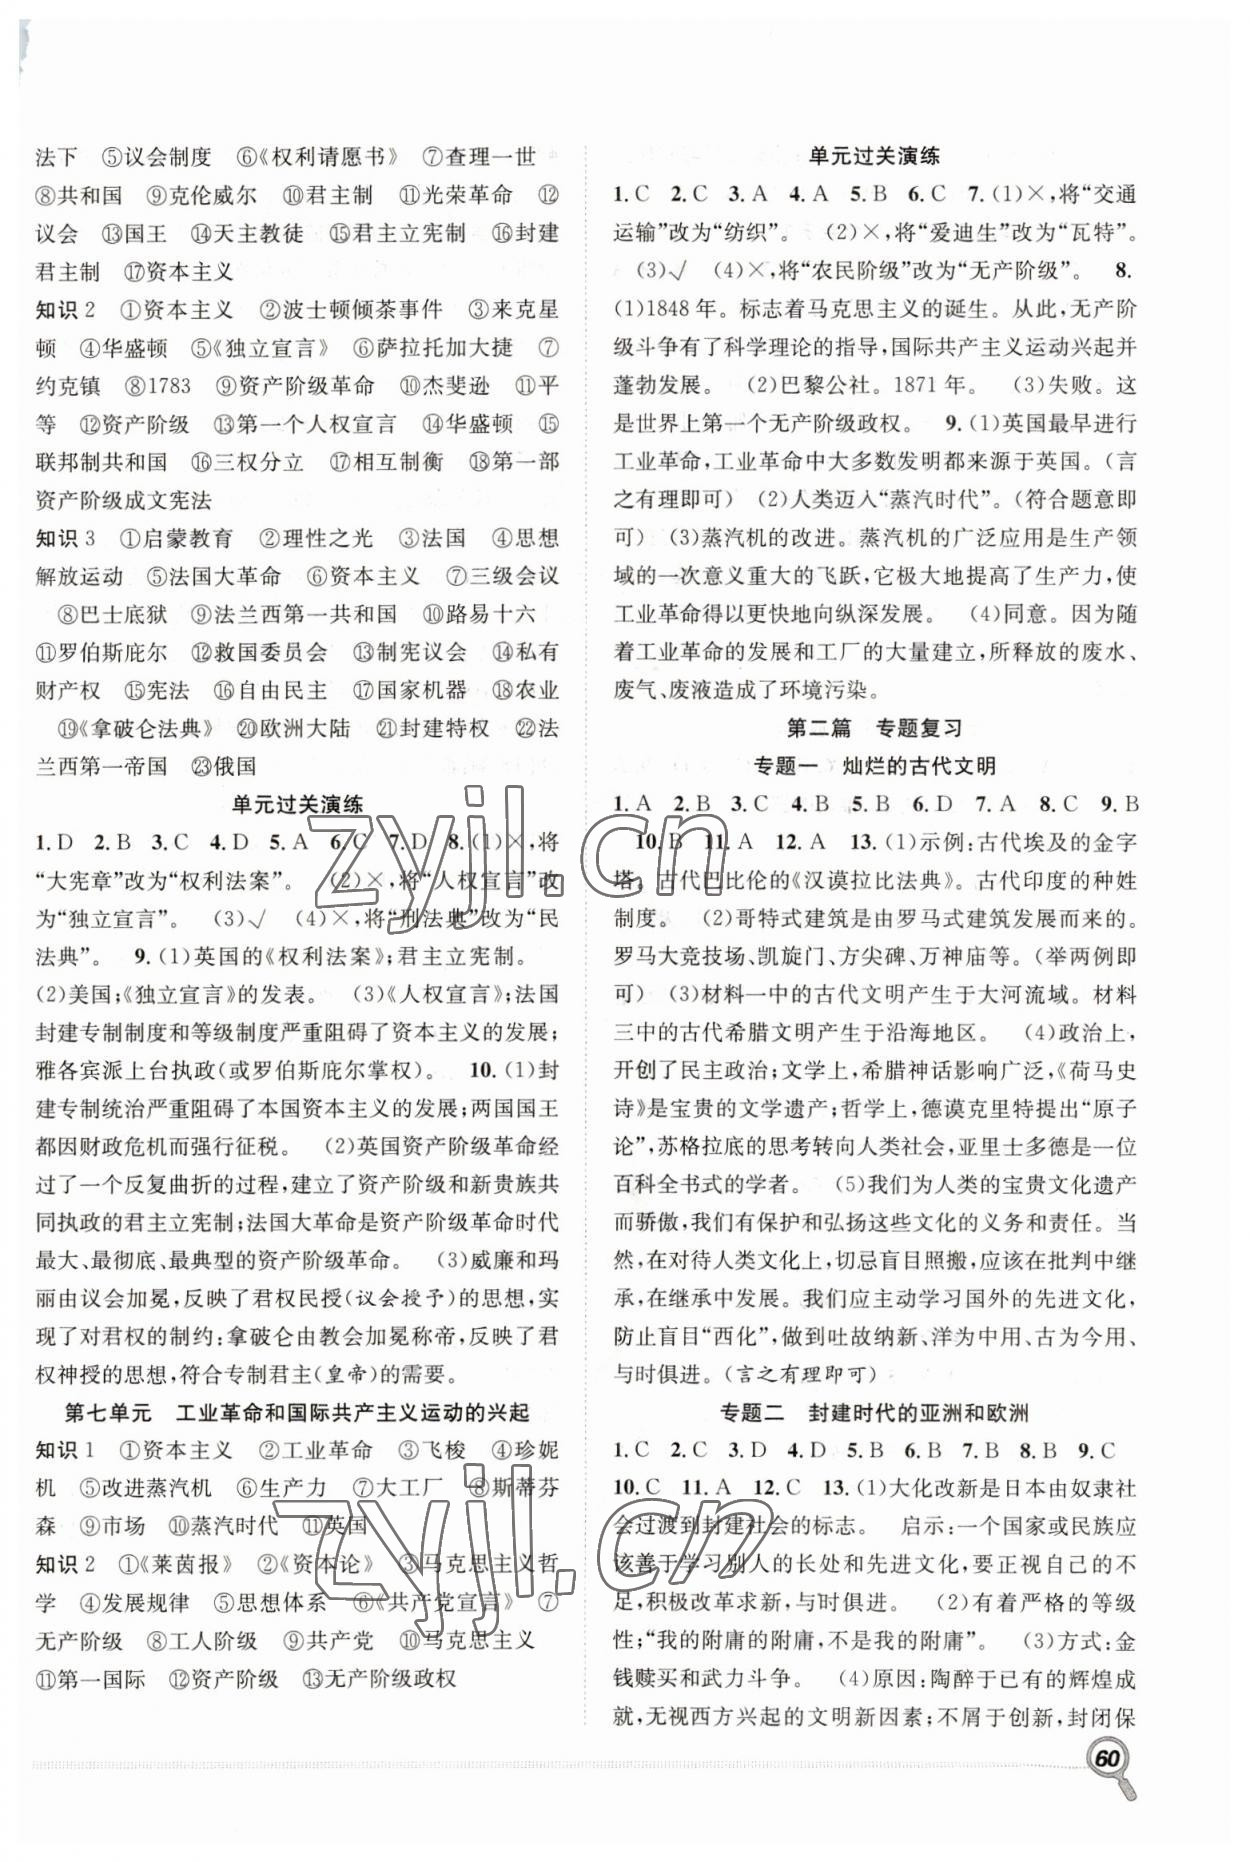 法下　⑤议会制度　⑥《权利请愿书》　⑦查理一世
⑧共和国　⑨克伦威尔　⑩君主制　⑪光荣革命　⑫
议会　⑬国王　⑭天主教徒　⑮君主立宪制　⑯封建
君主制　⑰资本主义
知识2　①资本主义　②波士顿倾茶事件　③来克星
顿　④华盛顿　⑤《独立宣言》　⑥萨拉托加大捷　⑦
约克镇　⑧1783　⑨资产阶级革命　⑩杰斐逊　⑪平
等　⑫资产阶级　⑬第一个人权宣言　⑭华盛顿　⑮
联邦制共和国　⑯三权分立　⑰相互制衡　⑱第一部
资产阶级成文宪法
知识3　①启蒙教育　②理性之光　③法国　④思想
解放运动　⑤法国大革命　⑥资本主义　⑦三级会议
⑧巴士底狱　⑨法兰西第一共和国　⑩路易十六
⑪罗伯斯庇尔　⑫救国委员会　⑬制宪议会　⑭私有
财产权　⑮宪法　⑯自由民主　⑰国家机器　⑱农业
⑲《拿破仑法典》　⑳欧洲大陆　㉑封建特权　㉒法
兰西第一帝国　㉓俄国
单元过关演练
1. D　2. B　3. C　4. D　5. A　6. C　7. D　8. (1)×,将
“大宪章”改为“权利法案”。　(2)×,将“人权宣言”改
为“独立宣言”。　(3)√　(4)×,将“刑法典”改为“民
法典”。　9. (1)英国的《权利法案》;君主立宪制。
(2)美国;《独立宣言》的发表。　(3)《人权宣言》;法国
封建专制制度和等级制度严重阻碍了资本主义的发展;
雅各宾派上台执政(或罗伯斯庇尔掌权)。　10. (1)封
建专制统治严重阻碍了本国资本主义的发展;两国国王
都因财政危机而强行征税。　(2)英国资产阶级革命经
过了一个反复曲折的过程,建立了资产阶级和新贵族共
同执政的君主立宪制;法国大革命是资产阶级革命时代
最大、最彻底、最典型的资产阶级革命。　(3)威廉和玛
丽由议会加冕,反映了君权民授(议会授予)的思想,实
现了对君权的制约;拿破仑由教会加冕称帝,反映了君
权神授的思想,符合专制君主(皇帝)的需要。
第七单元　工业革命和国际共产主义运动的兴起
知识1　①资本主义　②工业革命　③飞梭　④珍妮
机　⑤改进蒸汽机　⑥生产力　⑦大工厂　⑧斯蒂芬
森　⑨市场　⑩蒸汽时代　⑪英国
知识2　①《莱茵报》　②《资本论》　③马克思主义哲
学　④发展规律　⑤思想体系　⑥《共产党宣言》　⑦
无产阶级　⑧工人阶级　⑨共产党　⑩马克思主义
⑪第一国际　⑫资产阶级　⑬无产阶级政权
单元过关演练
1. C　2. C　3. A　4. A　5. B　6. C　7. (1)×,将“交通
运输”改为“纺织”。　(2)×,将“爱迪生”改为“瓦特”。
(3)√　(4)×,将“农民阶级”改为“无产阶级”。　8.
(1)1848年。标志着马克思主义的诞生。从此,无产阶
级斗争有了科学理论的指导,国际共产主义运动兴起并
蓬勃发展。　(2)巴黎公社。1871年。　(3)失败。这
是世界上第一个无产阶级政权。　9. (1)英国最早进行
工业革命,工业革命中大多数发明都来源于英国。(言
之有理即可)　(2)人类迈入“蒸汽时代”。(符合题意即
可)　(3)蒸汽机的改进。蒸汽机的广泛应用是生产领
域的一次意义重大的飞跃,它极大地提高了生产力,使
工业革命得以更快地向纵深发展。　(4)同意。因为随
着工业革命的发展和工厂的大量建立,所释放的废水、
废气、废液造成了环境污染。
第二篇　专题复习
专题一　灿烂的古代文明
1. A　2. B　3. C　4. B　5. B　6. D　7. A　8. C　9. B
10. B　11. A　12. A　13. (1)示例:古代埃及的金字
塔。古代巴比伦的《汉谟拉比法典》。古代印度的种姓
制度。　(2)哥特式建筑是由罗马式建筑发展而来的。
罗马大竞技场、凯旋门、方尖碑、万神庙等。(举两例即
可)　(3)材料一中的古代文明产生于大河流域。材料
三中的古代希腊文明产生于沿海地区。　(4)政治上,
开创了民主政治;文学上,希腊神话影响广泛,《荷马史
诗》是宝贵的文学遗产;哲学上,德谟克里特提出“原子
论”,苏格拉底的思考转向人类社会,亚里士多德是一位
百科全书式的学者。　(5)我们为人类的宝贵文化遗产
而骄傲,我们有保护和弘扬这些文化的义务和责任。当
然,在对待人类文化上,切忌盲目照搬,应该在批判中继
承,在继承中发展。我们应主动学习国外的先进文化,
防止盲目“西化”,做到吐故纳新、洋为中用、古为今用、
与时俱进。(言之有理即可)
专题二　封建时代的亚洲和欧洲
1. C　2. C　3. D　4. D　5. B　6. B　7. D　8. B　9. C
10. C　11. A　12. C　13. (1)大化改新是日本由奴隶社
会过渡到封建社会的标志。　启示:一个国家或民族应
该善于学习别人的长处和先进文化,要正视自己的不
足,积极改革求新,与时俱进。　(2)有着严格的等级
性;“我的附庸的附庸,不是我的附庸”。　(3)方式:金
钱赎买和武力斗争。　(4)原因:陶醉于已有的辉煌成
就,无视西方兴起的文明新因素;不屑于创新,封闭保
60
zyjl.cn
zyjl.cn